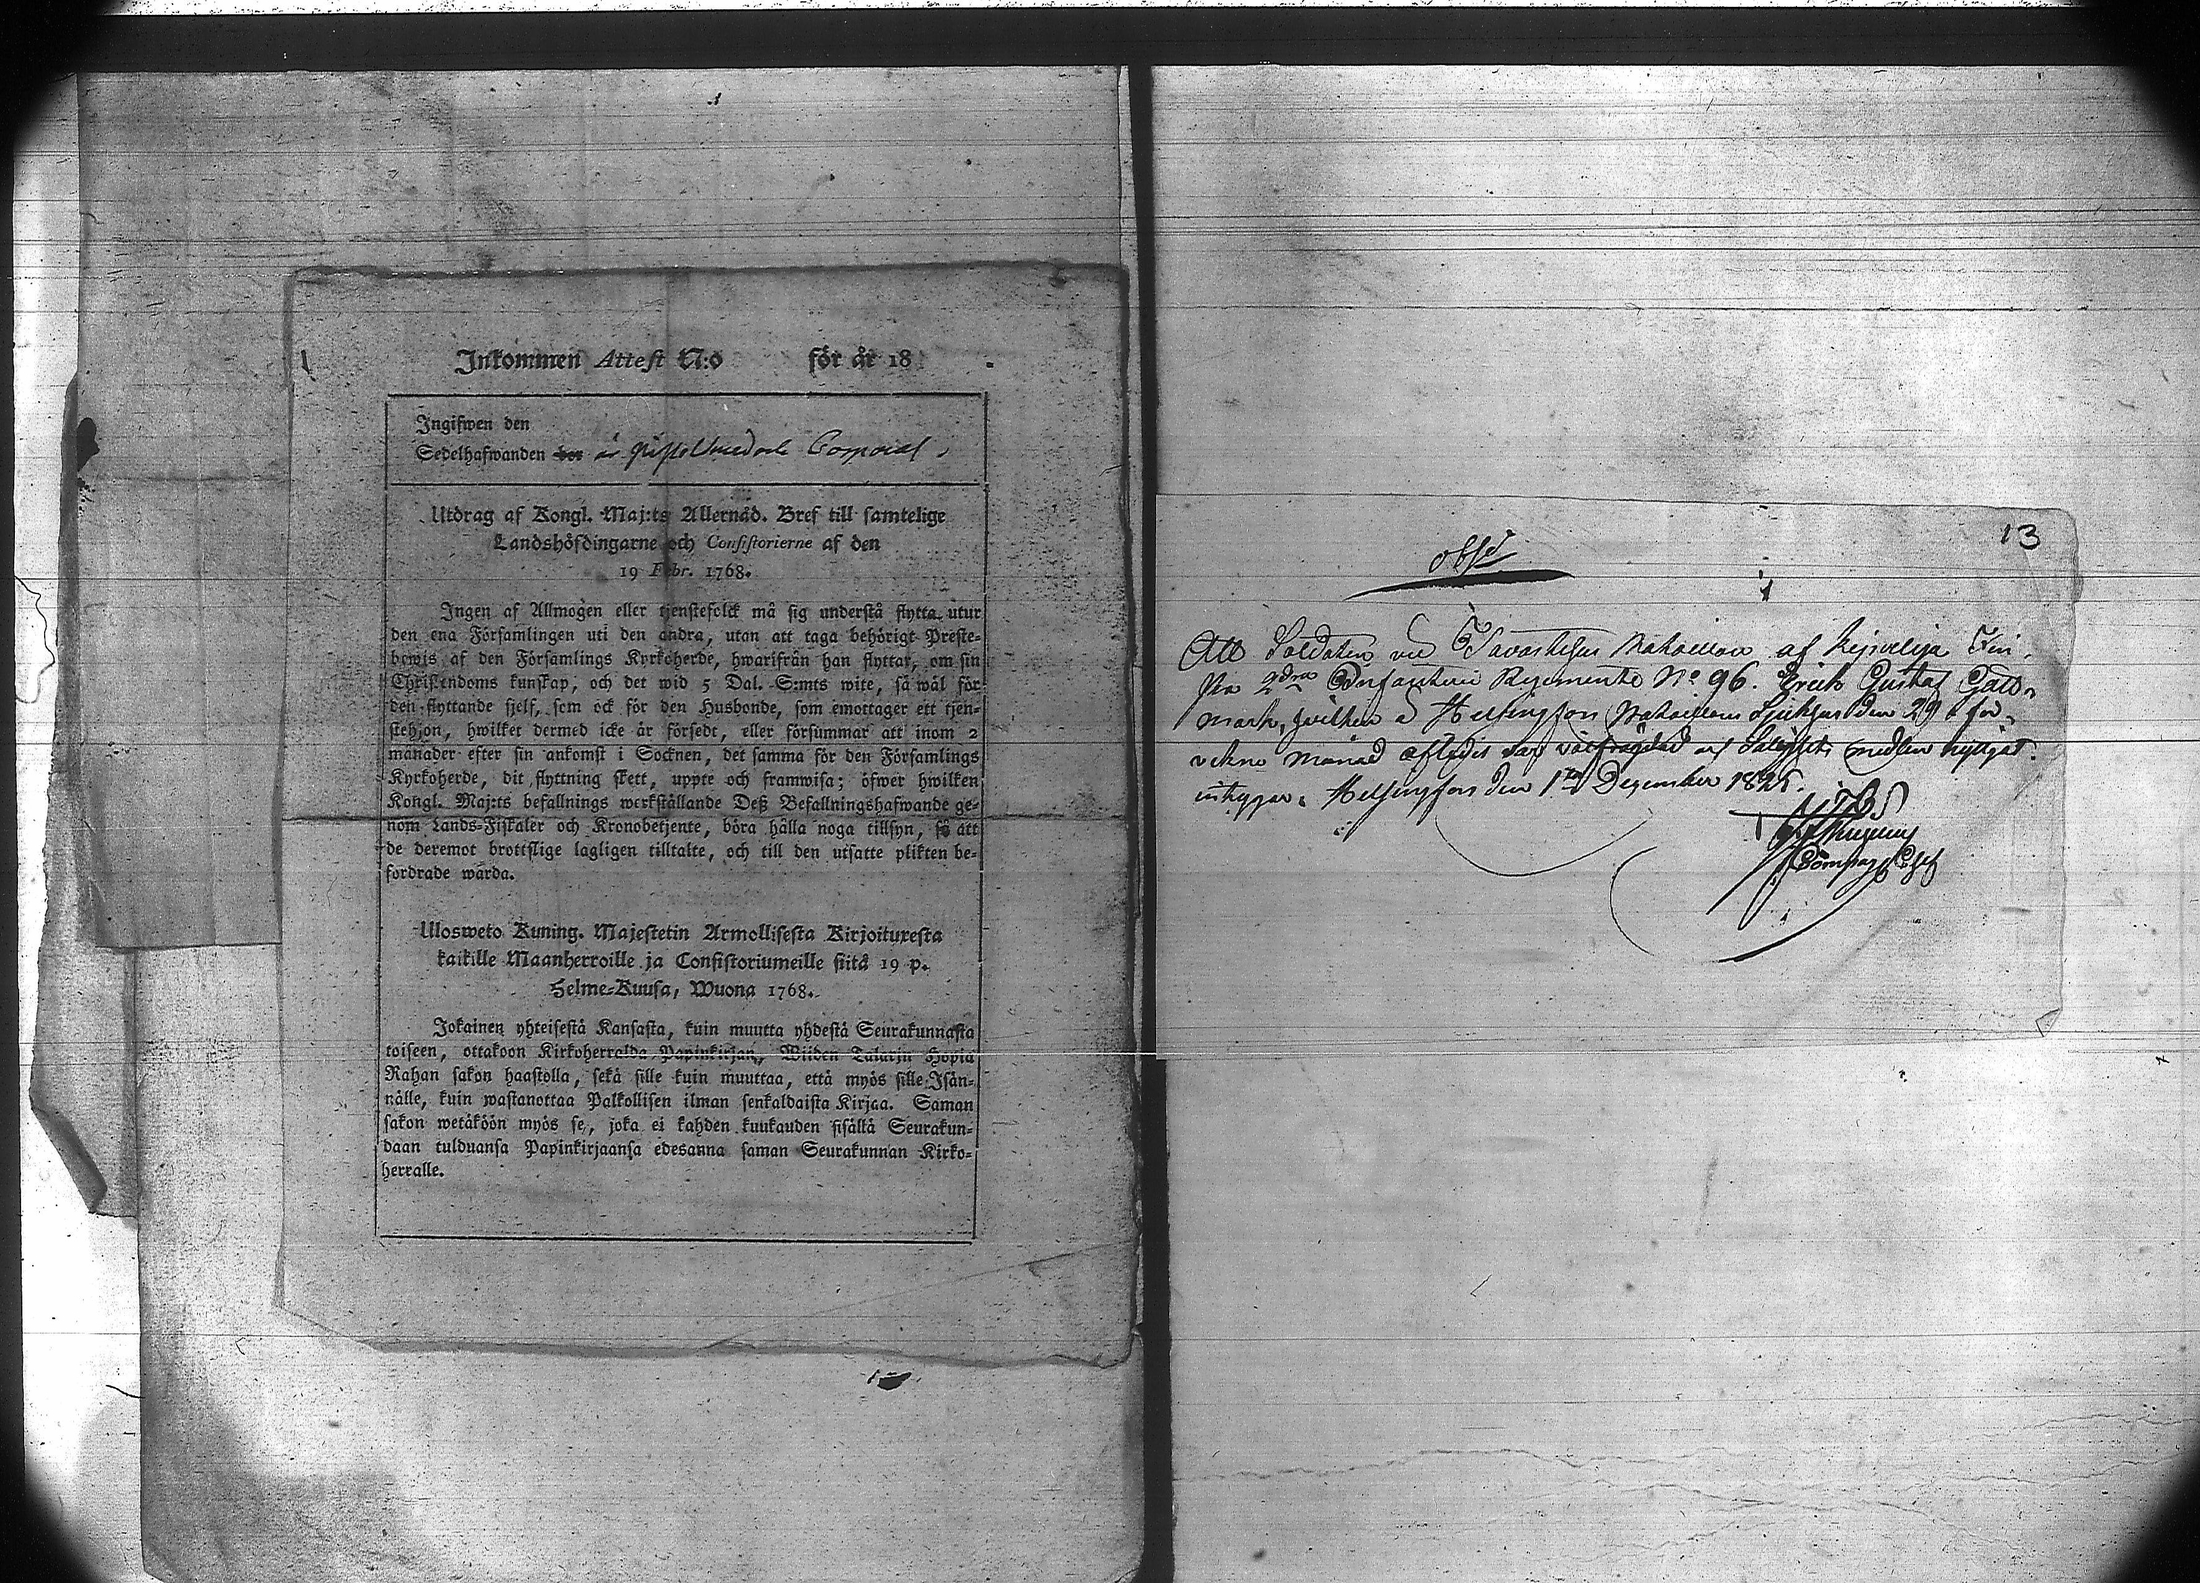 Inkommen Attest N:o för år 18
Ingifwen den
Sedelhafwanden har är Corporal
Utdrag af Kongl. Maj:ts Allernåd. Bref till samtelige
Landshöfdingarne och Consistorierne af den
19 Febr. 1768.
Ingen af Allmogen eller tjenstefolck må sig understå flytta utur
den ena Församlingen uti den andra, utan att taga behörigt Preste-
bewis af den Församlings Kyrkoherde, hwarifrån han flyttar, om sin
Christendoms kunskap, och det wid 5 Dal. S:mts wite, så wäl för
den flyttande sjelf, som ock för den Husbonde, som emottager ett tjen-
stehjon, hwilket dermed icke är försedt, eller försummar att inom 2
månader efter sin ankomst i Socknen, det samma för den Församlings
Kyrkoherde, dit flyttning skett, uppte och framwisa; öfwer hwilken
Kongl. Maj:ts befallnings werkställande Deß Befallningshafwande ge-
nom Lands-Fiskaler och Kronobetjente, böra hålla noga tillsyn, så att
de deremot brottslige lagligen tilltalte, och till den utsatte plikten be-
fordrade warda.
Ulosweto Kuning. Majestetin Armollisesta Kirjoituxesta
kaikille Maanherroille ja Consistoriumeille siitä 19 p.
Helme-Kuusa, Wuona 1768.
Jokainen yhteisestä Kansasta, kuin muutta yhdestä Seurakunnasta
toiseen, ottakoon Kirkoherralda Papinkirjan, Wiiden Talarin Hopia
Rahan sakon haastolla, sekä sille kuin muuttaa, että myös sille Isän-
nälle, kuin wastanottaa Palkollisen ilman senkaldaista Kirjaa. Saman
sakon wetäköön myös se, joka ei kahden kuukauden sisällä Seurakun-
daan tulduansa Papinkirjaansa edesanna saman Seurakunnan Kirko-
herralle.
13
Att Soldaten vid Tavastehus Bataillon af Kejserliga Fin-
ska 2dra Infanterie Regemente No 96. Erick Gustaf Gald-
mark, hvilken å Helsingfors Bataillons Sjukhus den 29 i för-
vekne Månad afledit har medlen nyttjat
intygar. Helsingfors den 1sta December 1825.
Compag Chef